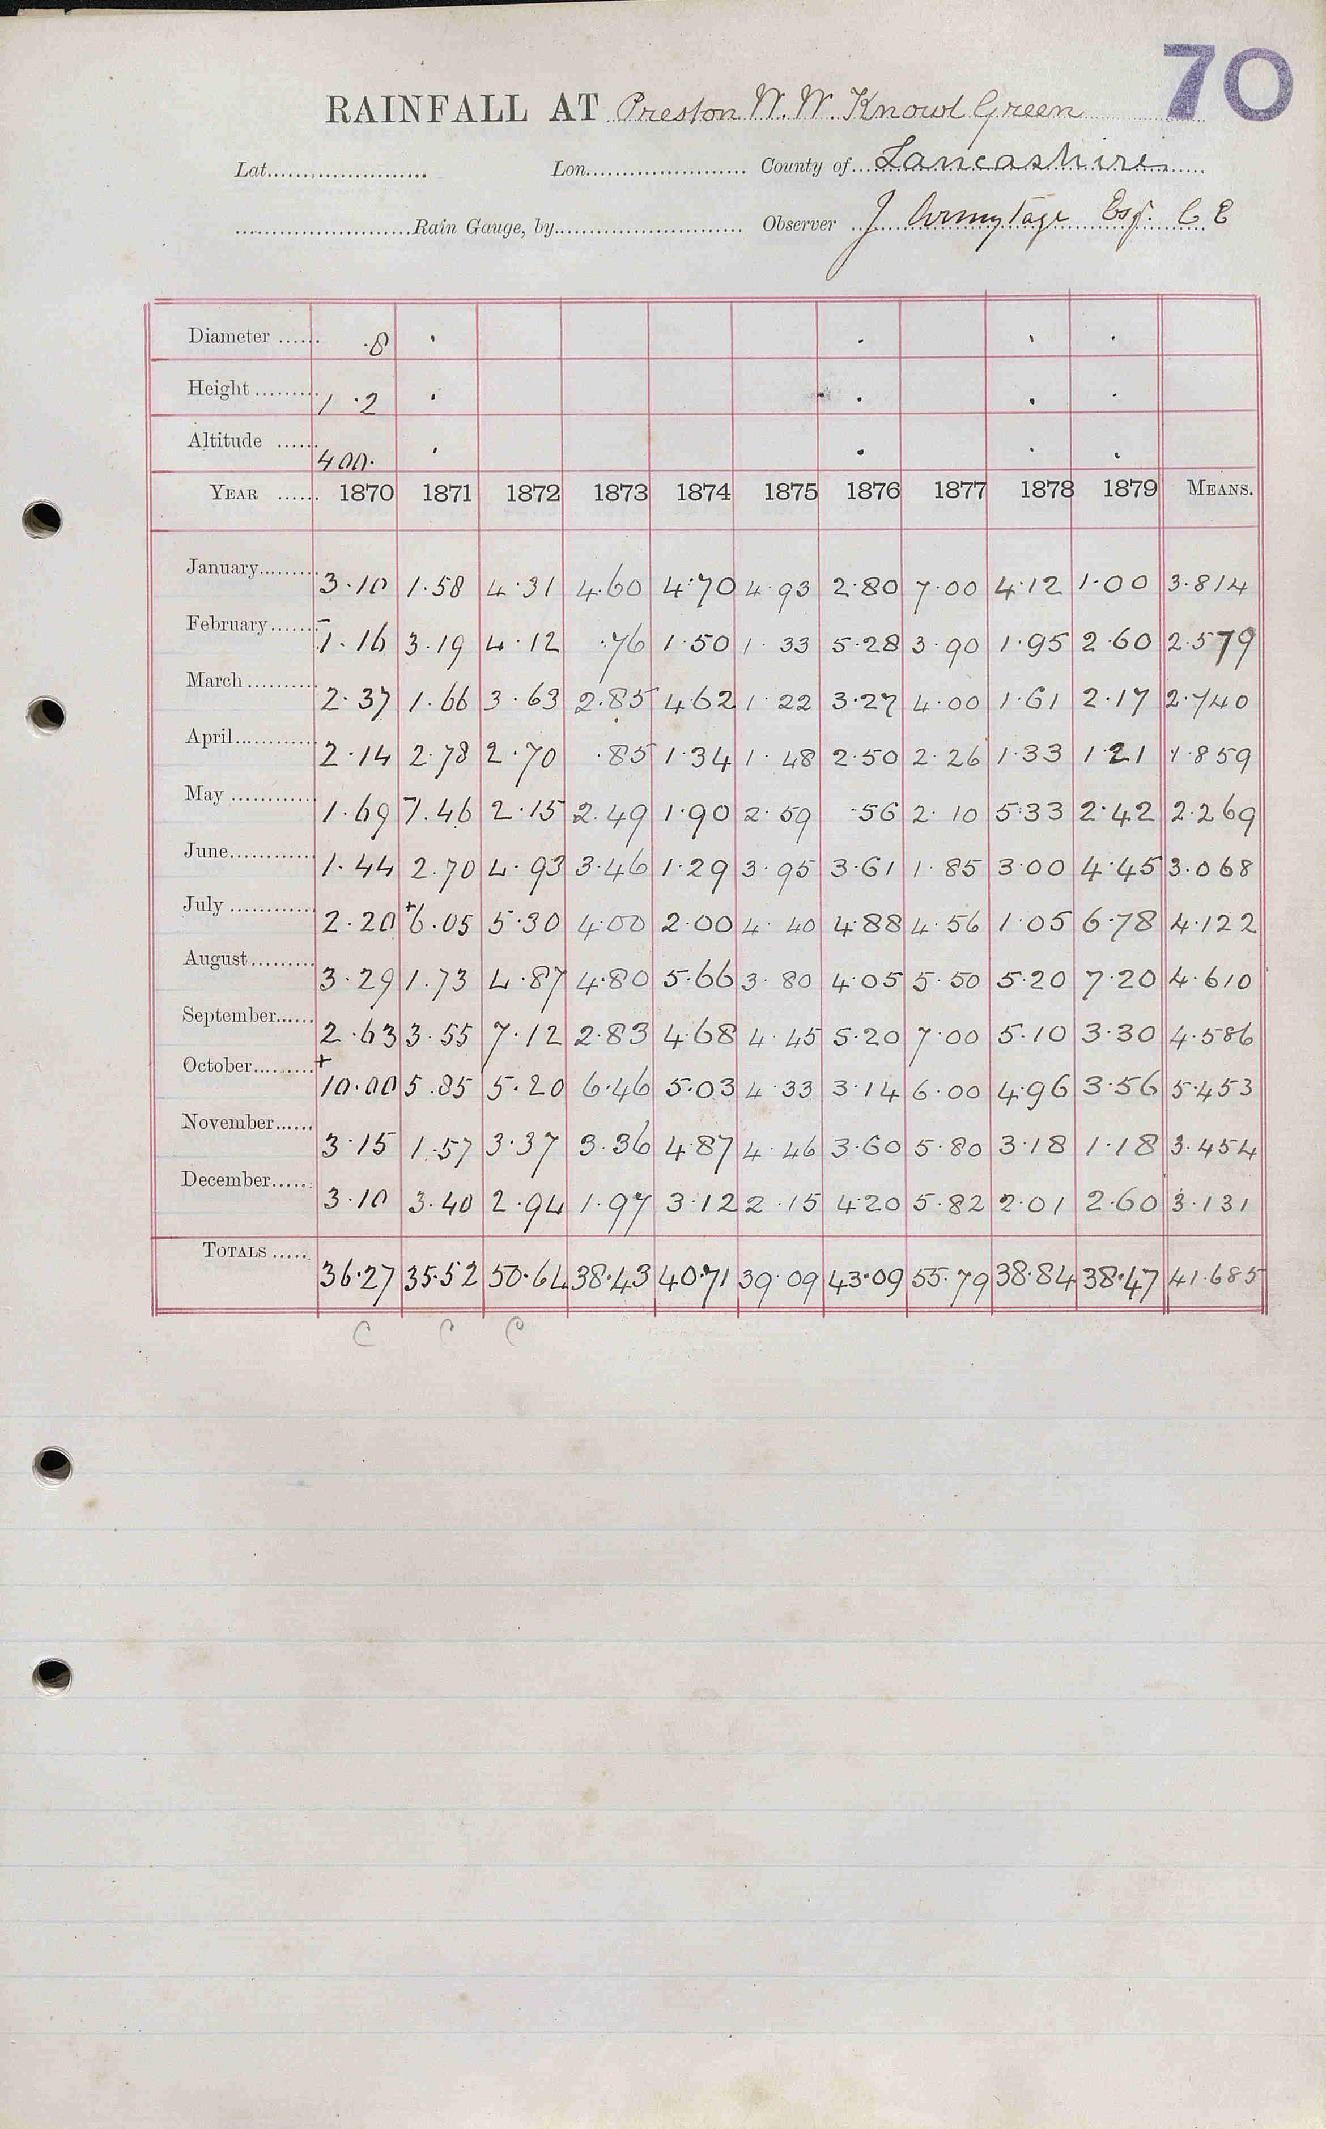 70
RAINFALL AT Preston W.W. Knowl Green
Lat. Lon. County of Lancashire
Rain Gauge, by Observer J Armytage Esqr. C E
Diameter ...... ·8 · · · ·
Height ......... 1 ·2 · · · ·
Altitude ...... 400· · · · ·
YEAR ...... 1870 1871 1872 1873 1874 1875 1876 1877 1878 1879 MEANS.
January......... 3·10 1·58 4·31 4·60 4·70 4·93 2·80 7·00 4·12 1·00 3·814
February....... -1·16 3·19 4·12 ·76 1·50 1·33 5·28 3·90 1·95 2·60 2·579
March .......... 2·37 1·66 3·63 2·85 4·62 1·22 3·27 4·00 1·61 2·17 2·740
April............ 2·14 2·78 2·70 ·85 1·34 1·48 2·50 2·26 1·33 1·21 1·859
May ............ 1·69 -1·46 2·15 2·49 1·90 2·59 ·56 2·10 5·33 2·42 2·269
June............ 1·44 2·70 4·93 3·46 1·29 3·95 3·61 1·85 3·00 4·45 3·068
July ............ 2·20 +6·05 5·30 4·00 2·00 4·40 4·88 4·56 1·05 6·78 4·122
August......... 3·29 1·73 4·87 4·80 5·66 3·80 4·05 5·50 5·20 7·20 4·610
September...... 2·63 3·55 7·12 2·83 4·68 4·45 5·20 7·00 5·10 3·30 4·586
October......... +10·00 5·85 5·20 6·46 5·03 4·33 3·14 6·00 4·96 3·56 5·453
November...... 3·15 1·57 3·37 3·36 4·87 4·46 3·60 5·80 3·18 1·18 3·454
December...... 3·10 3·40 2·94 1·97 3·12 2·15 4·20 5·82 2·01 2·60 3·131
TOTALS ..... 36·27 35·52 50·64 38·43 40·71 39·09 43·09 55·79 38·84 38·47 41·685
C C C